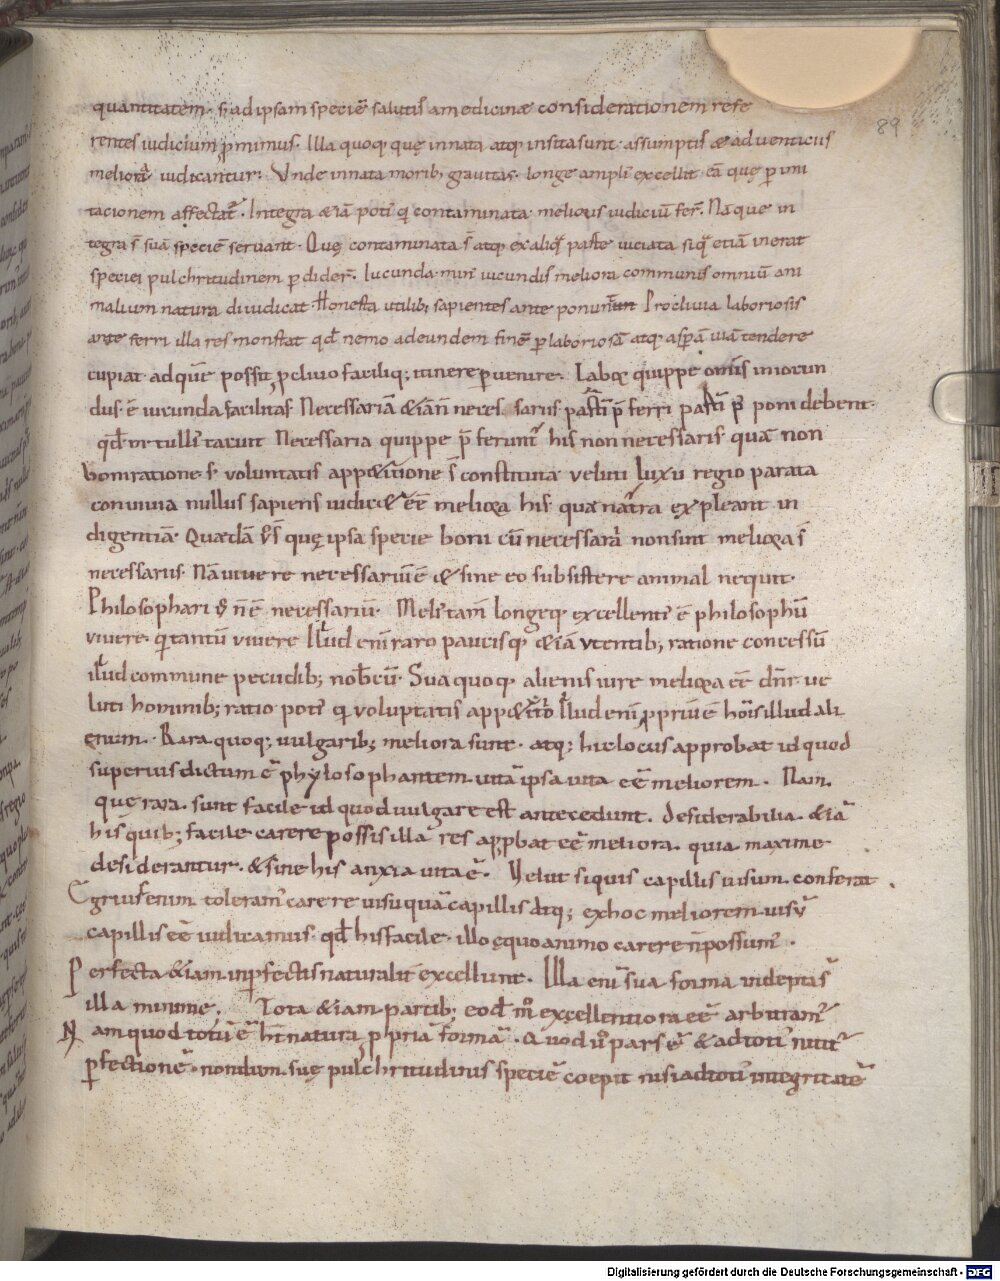 quantitatem. s; ad ipsam speciē salutis a medicinæ considerationem refe
rentes iudicium p̄mimus. Illa quoq; quę innata atq; insita sunt. assumptis & aduenticiis
meliora iudicantur. Vnde innata morib; grauitas. longe ampli' excellit eā quę p imi
tacionem affectat̄. Integra &iā poti' q̄ contaminata melioris iudiciū fer̄. Nāque in
tegra s̄ suā speciē seruant. Quę contaminata s̄ atq; ex aliq̄ parte uiciata siq̄ etiā inerat
speciei pulchritudinem pdider̄. Iucunda min' iucundis meliora communis omniū ani
malium natura diiudicat Honesta utilib; sapientes ante ponunt Procliuia laboriosis
ante ferri illa res monstrat qđ nemo ad eundem finē p laboriosā atq; asp̄am uiā tendere
cupiat ad quē possit p cliuio faciliq; itinere p uenire. Labor quippe om̄is iniocun
dus. ē iucunda facilitas Necessariā &iam neces sariis partim p̄ ferri partim p' poni debent.
qđ ut tulli' tacuit Necessaria quippe p̄ ferunt' his non necessariis. quæ non
boni ratione s; voluntatis app&itione s̄ constituta veluti luxu regio parata
conuiuia nullus sapiens iudic& eē meliora his quæ naturæ expleant in
digentiā. Quædā ū s̄ quę ipsa specie boni cū necessaria non sint meliora s̄
necessariis. Nā uiuere necessariū ē & sine eo subsistere animal nequit.
Philosophari ū n̄ ē necessariū. Meli' tam̄ longeq; excellenti' ē philosophū
vivere. q̄ tantū vivere Illud enī raro paucisq; &iā vtentib; ratione concessū
illud commune pecudib; nobcū. Sua quoq; alienis iure meliora eē dn̄r ue
luti hominib; ratio poti' q̄ voluptatis app&itio Illud enī p priū ē hōis illud ali
enum. Rara quoq; uulgarib; meliora sunt. atq; hic locus approbat id quod
superius dictum ē phylosophantem uitā ipsa uita eē meliorem. Nam
quę rara. sunt facile id quod uulgare est antecedunt. desiderabilia. &iā
his quib; facile carere possis illa res approbat eē meliora. quia maxime
desiderantur. & sine his anxia uita ē. Velut siquis capillis uisum conferat.
Egrius enim toleram' carere uisu quā capillis Atq; ex hoc meliorem uisū
capillis eē iudicamus. qđ his facile. illo ęquo animo carere n̄ possum'.
Perfecta &iam inp̄fectis naturalit̄ excellunt. Illa enī sua forma indepta s̄
illa minime. Tota &iam partib; eod̄ m̊ excellentiora eē arbitram'
Nam quod totū ē h̄t natura p priā formā. Quod ū pars ē & ad toti' nitit'
pfectionē. nondum suę pulchritudinis speciē coepit nisi ad toti' integritatē
89
Digitalisierung gefördert durch die Deutsche Forschungsgemeinschaft - DFG